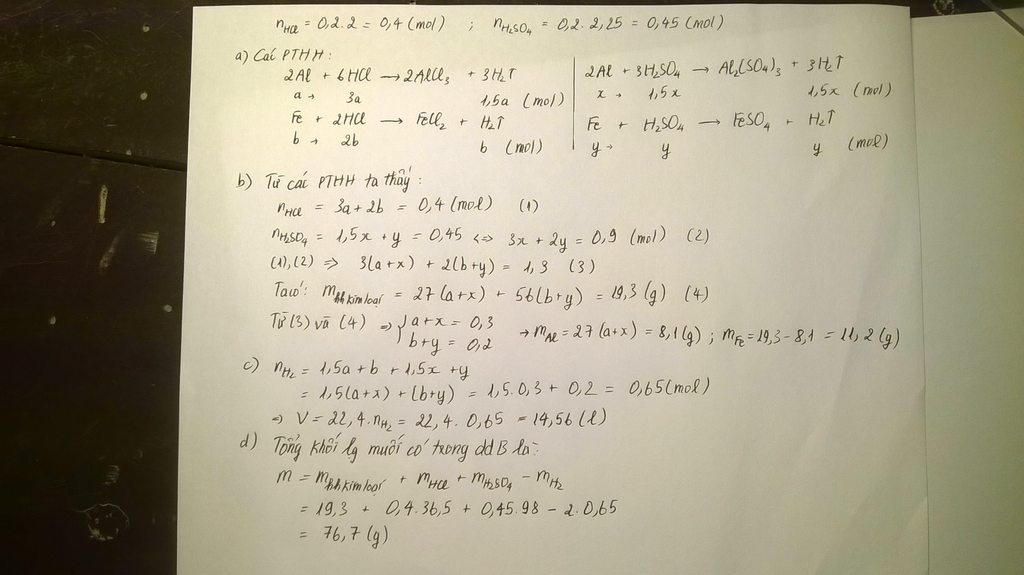 nHCl = 0,2.2 = 0,4 (mol) ; nH2SO4 = 0,2.2,25 = 0,45 (mol)
a) Các PTHH:
2Al + 6HCl → 2AlCl3 + 3H2↑
a → 3a 1,5a (mol)
Fe + 2HCl → FeCl2 + H2↑
b → 2b b (mol)
2Al + 3H2SO4 → Al2(SO4)3 + 3H2↑
x → 1,5x 1,5x (mol)
Fe + H2SO4 → FeSO4 + H2↑
y → y y (mol)
b) Từ các PTHH ta thấy:
nHCl = 3a + 2b = 0,4 (mol) (1)
nH2SO4 = 1,5x + y = 0,45 <=> 3x + 2y = 0,9 (mol) (2)
(1),(2) => 3(a+x) + 2(b+y) = 1,3 (3)
Ta có: mhh kim loại = 27(a+x) + 56(b+y) = 19,3 (g) (4)
Từ (3) và (4) => { a+x = 0,3 → mAl = 27(a+x) = 8,1(g) ; mFe = 19,3 - 8,1 = 11,2(g)
b+y = 0,2
c) nH2 = 1,5a + b + 1,5x + y
= 1,5(a+x) + (b+y) = 1,5.0,3 + 0,2 = 0,65 (mol)
=> V = 22,4.nH2 = 22,4.0,65 = 14,56 (l)
d) Tổng khối lg muối có trong dd B là:
m = mhh kim loại + mHCl + mH2SO4 - mH2
= 19,3 + 0,4.36,5 + 0,45.98 - 2.0,65
= 76,7 (g)